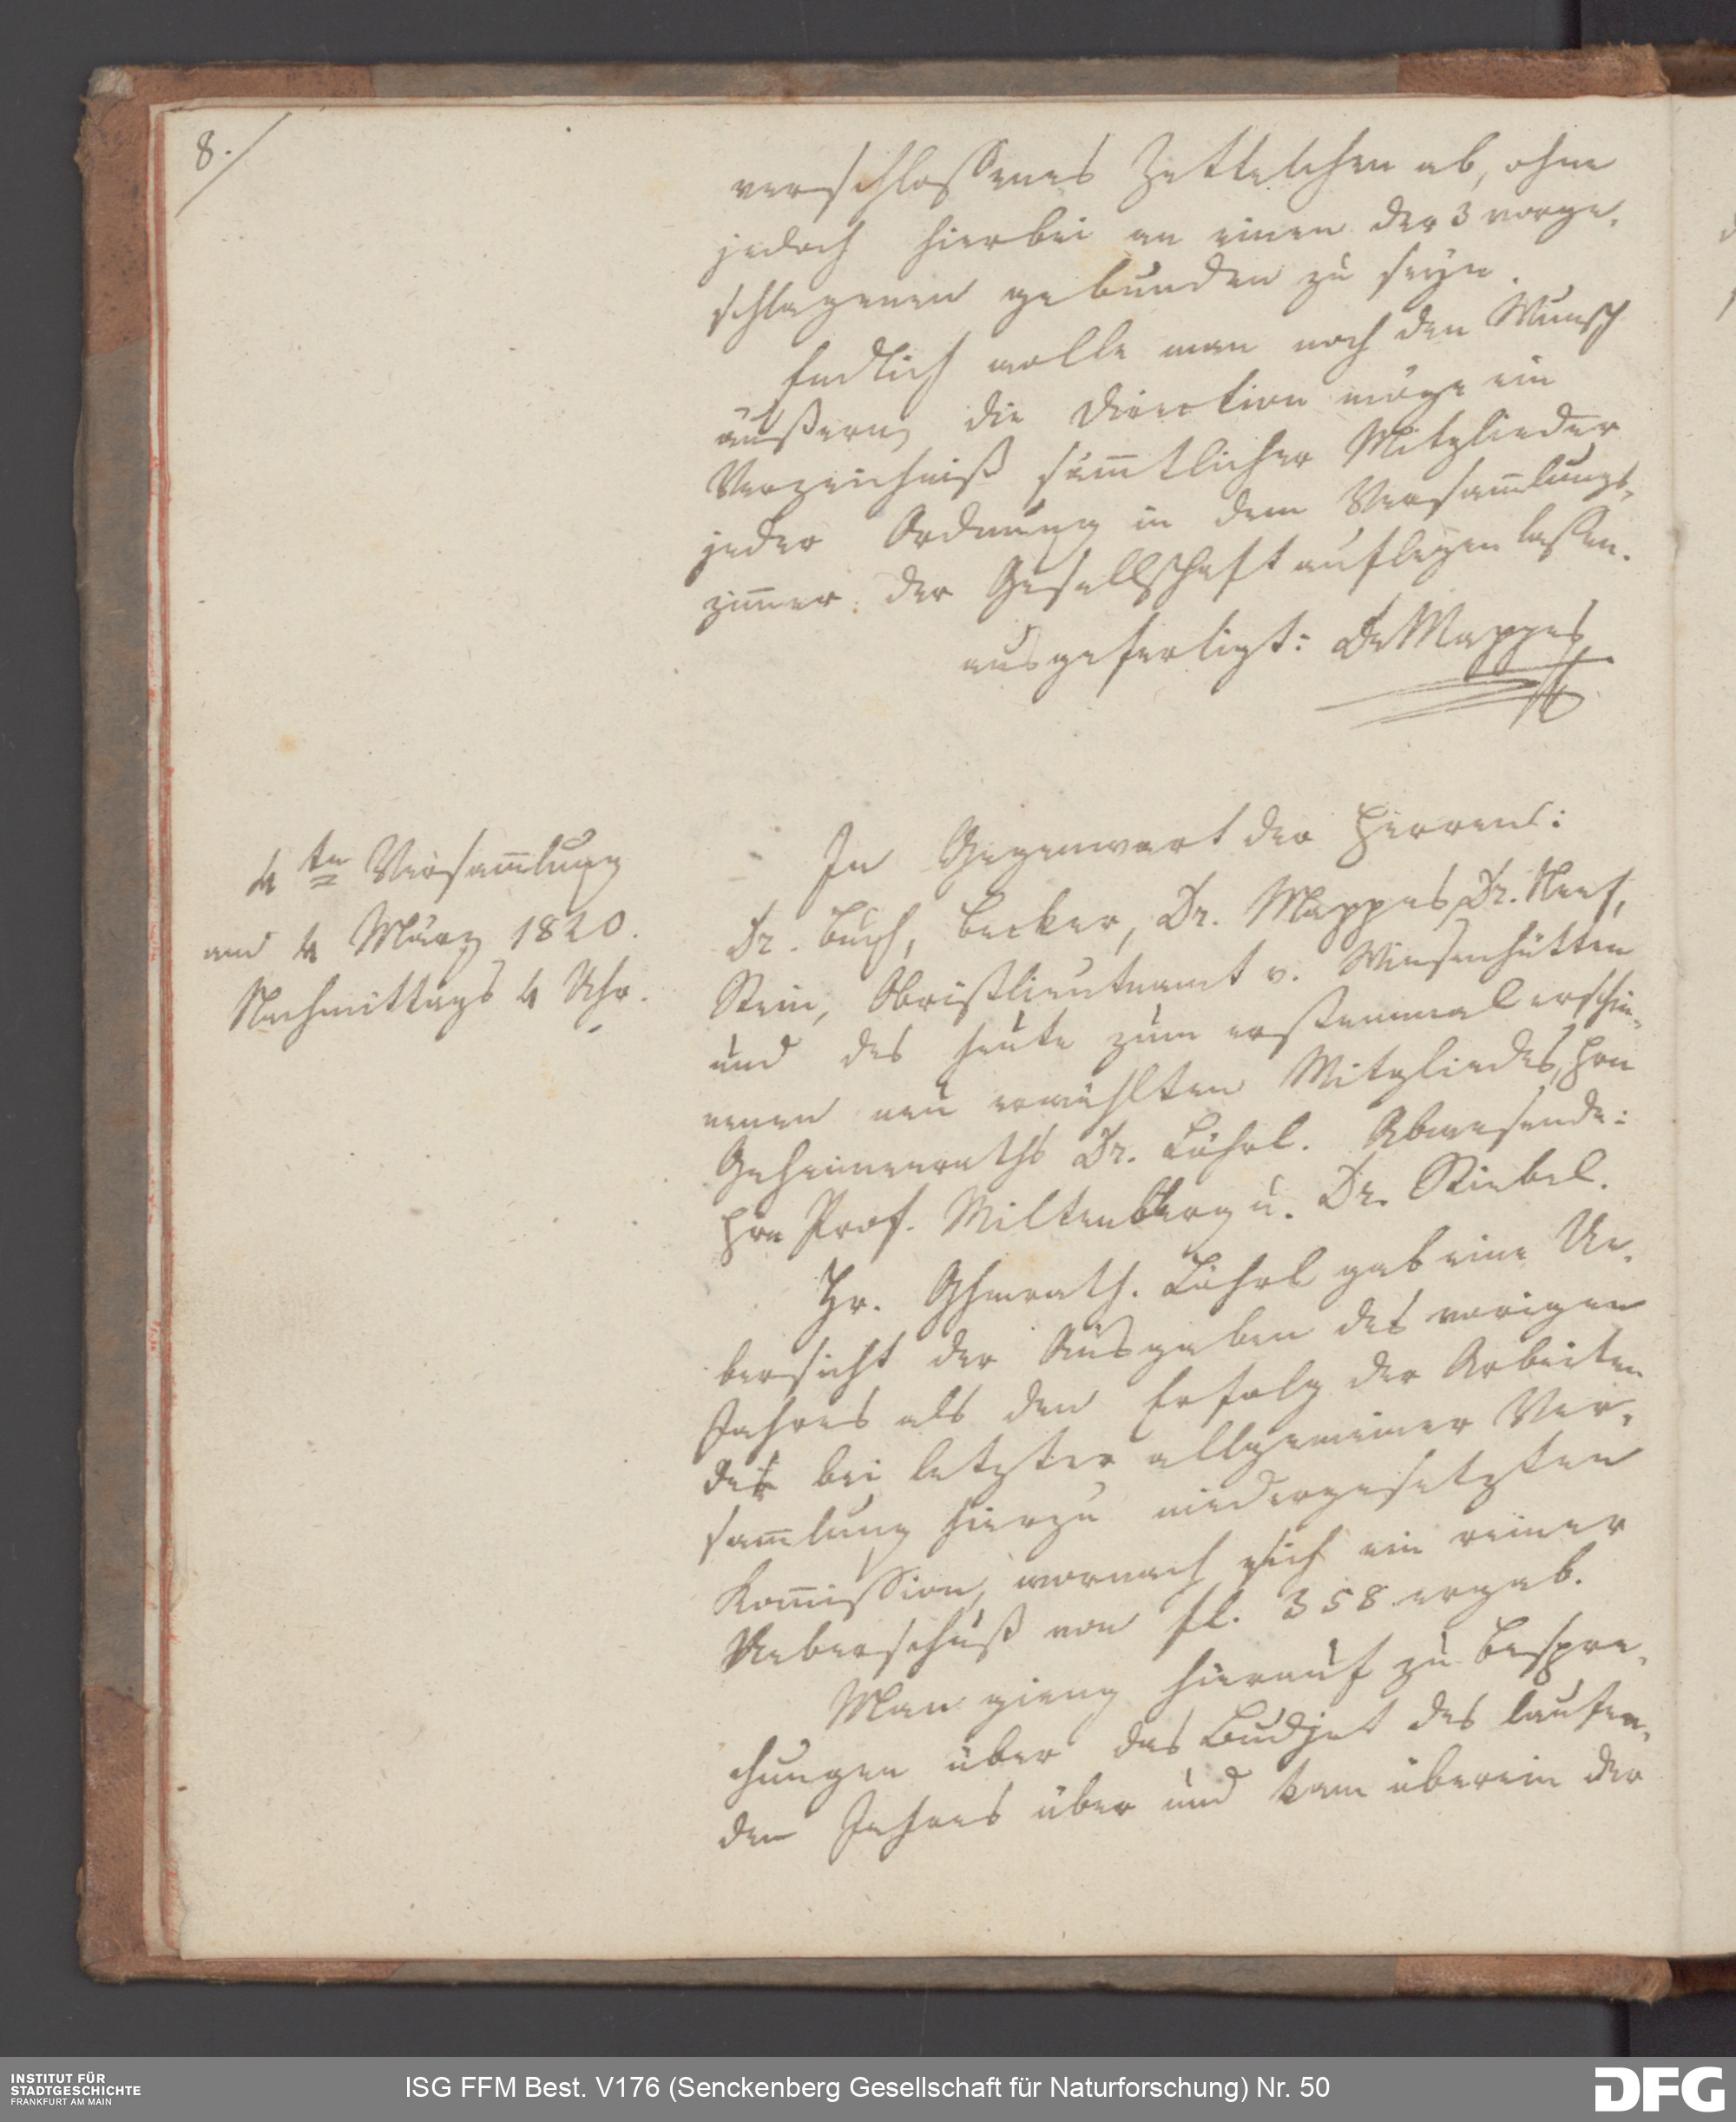 8.
verschlossenes Zettelchen ab, ohne
jedoch hierbei an einen der 3 vorge-
schlagenen gebunden zu seyn.
Endlich wolle man noch den Wunsch
äußern, die Direction möge ein
Verzeichniß sämtlicher Mitglieder
jeder Ordnung in dem Versamlungs-
zimer der Gesellschaft auflegen lassen.
ausgefertigt: Dr Mappes
4te Versamlung
am 4 März 1820.
Nachmittags 4 Uhr.
In Gegenwart der Herren:
Dr. Buch, Becker, Dr. Mappes, Dr. Neef,
Stein, Obristlieutnant v. Wiesenhütten
und des heute zum erstenmal erschie-
nenen neu erwählten Mitgliedes, Hrn
Geheimenraths Dr. Löhrl. Abwesende:
Hrn Prof. Miltenberg u. Dr. Stiebel.
Hr. Ghmrath. Löhrl gab eine Ue-
bersicht der Ausgaben des vorigen
Jahres als den Erfolg der Arbeiten
der bei letzter allgemeiner Ver-
samlung hierzu niedergesetzten
Komission, wornach sich ein reiner
Ueberschuß von fl. 358 ergab.
Man gieng hierauf zu Bespre-
chungen über das Budjet des laufen-
den Jahres über und kam überein der
INSTITUT FÜR
STADTGESCHICHTE
FRANKFURT AM MAIN
ISG FFM Best. V176 (Senckenberg Gesellschaft für Naturforschung) Nr. 50
DFG